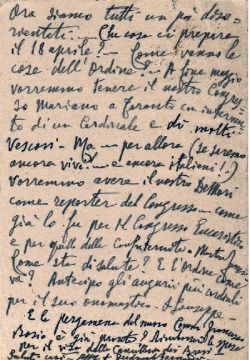 Ora siamo tutti un po' diso-
rientati. - Che cosa ci prepara
il 18 aprile? - Come vanno le
cose dell'Ordine? - A fine maggio
vorremmo tenere il nostro Congres-
so Mariano a Taranto con intervento
to di un Cardinale e di molti
Vescovi - Ma - per allora (se saremo
ancora vivi... e ancora italiani!)
vorremmo avere il nostro
come reporter del Congresso - come
già lo fu per il Congresso Eucaristico
e per quello delle Confraternite.
Come sta di salute? E l'Ordine come
va? Anticipo gli auguri più cordiali
per il suo onomastico - S. Giuseppe -
E la pergamena del nuovo
è già pronta?
per il visto della
Saluti cari